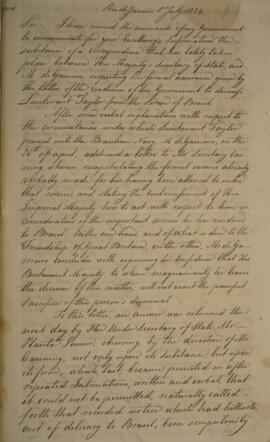 Rio de Janeiro 1st July 1824
Sir. I have received the commands of my Government
to communicate for your Excellency's information the
substance of a correspondence that has lately taken
place between His Majesty's Secretary of State, and
M. de Gameiro, respecting the formal assurance given by
the latter, of the readiness of his Government to dismiss
Lieutenant Taylor from the Service of Brazil
After some verbal explanation with respect to
the circumstances under which Lieutenant Taylor
passed into the Brazilian Navy, M. de Gameiro, on the
of April, addressed a letter to Mr Secretary Can-
ning, wherein recapitulating the formal excuses already
verbally made for his having been allowed to enter
that service, and stating the embarrassment of His
Imperial Majesty how to act with respect to him, in
consideration of the important services he has rendered
to Brazil, on the one hand and of what is due to the
Friendship of Great Britain, on the other, M. de Ga-
meiro concludes with expressing his confidence that His
Britannick Majesty to whose magnanimity he leaves
the decision of the matter, will not exact the painful
sacrifice of this person's dismissal.
To this letter, an answer was returned the
next day by The Under Secretary of State, Mr
Planta Junior, observing by the direction of Mr
Canning, not only upon its substance, but upon
its form, which last, because persisted in after
repeated intimations, written and verbal, that
it could not be permitted, naturally called
forth that recorded notice which had hitherto,
out of delicacy to Brazil, been scrupulously